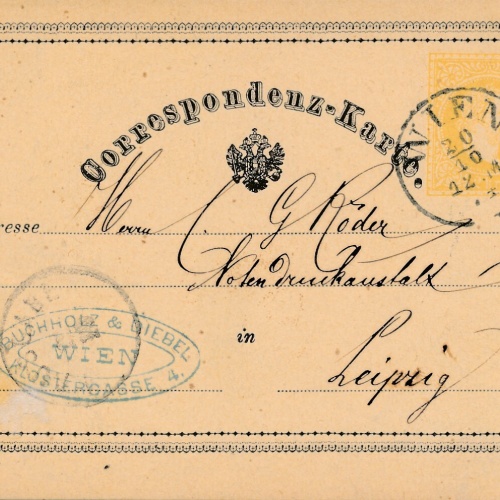 Correspondenz-Karte.
WIEN
20
10
12 M
resse
Herrn C. G Röder
Notendruckanstalt
in
Leipzig
BUCHHOLZ & DIEBEL
WIEN
KLOSTERGASSE 4.